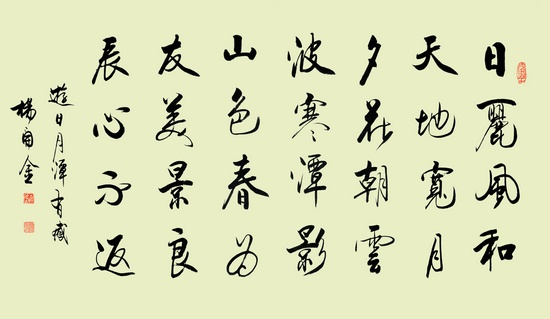 日麗風和
天地寬月
夕花朝雲
波寒潭影
山色春為
友美景良
辰心不返
遊日月潭有感
楊金